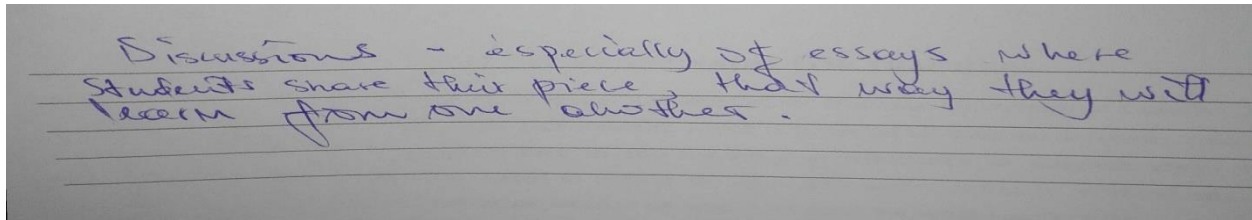 Discussions - especially of essays where
students share their piece, that way they will
learn from one another.